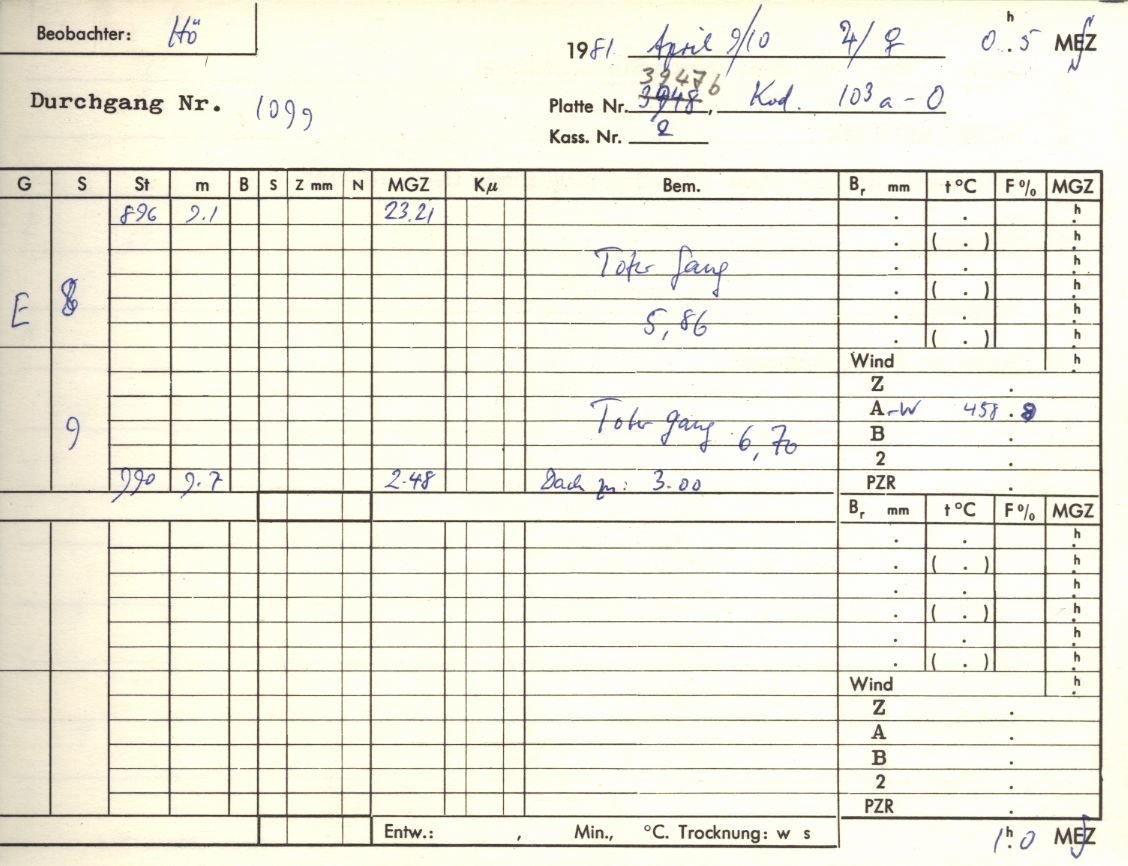 Beobachter: Hö
1981 April 9/10 ♃/♀ 0h.5 MEZ
Durchgang Nr. 1099
39476
Platte Nr. 3948, Kod. 103a-O
Kass. Nr. 2
G S St m B S Z mm N MGZ Kμ Bem. Br mm t°C F% MGZ
896 9.1 23.21 . . h.
. ( . ) h.
Toter Gang . . h.
. ( . ) h.
E 8 5,86 . . h.
. ( . ) h.
Wind h.
Z .
A-W 458.8
9 Toter Gang 6,70 B .
2 .
990 9.7 2.48 Dach zu: 3.00 PZR .
Br mm t°C F% MGZ
. . h.
. ( . ) h.
. . h.
. ( . ) h.
. . h.
. ( . ) h.
Wind h.
Z .
A .
B .
2 .
PZR .
Entw.: , Min., °C. Trocknung: w s
1h.0 MEZ